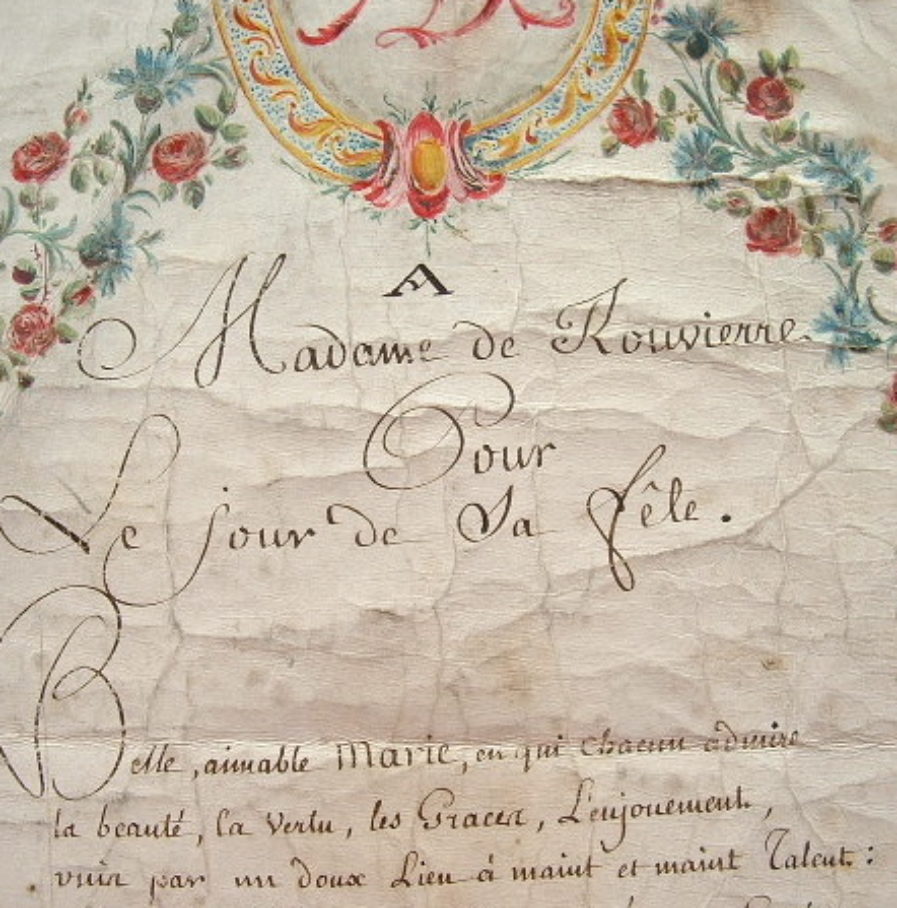 A
Madame de Rouvierre
Pour
Le jour de Sa fête.
Belle, aimable Marie, en qui chacun admire
la beauté, la vertu, les Graces, L'enjouement,
unis par un doux Lien à maint et maint Talent: